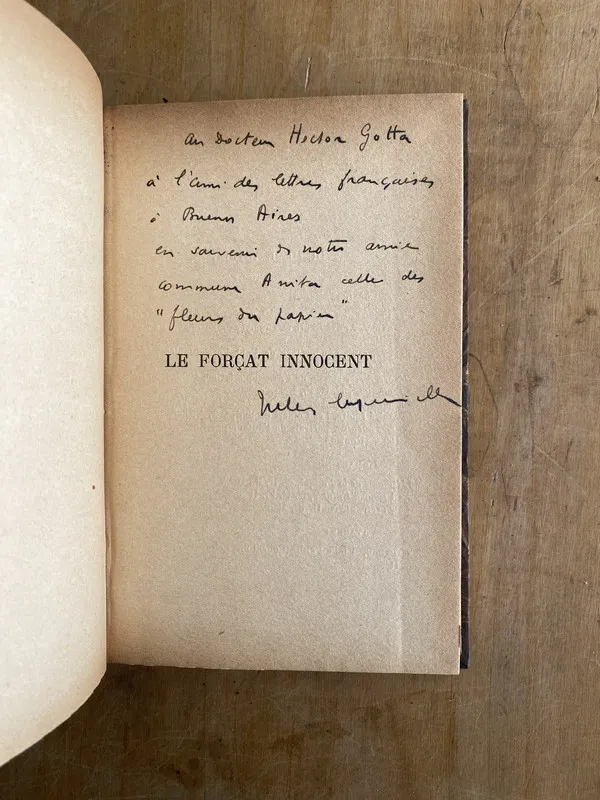 au Docteur Hector Gotta
à l'ami des lettres françaises
à Buenos Aires
en souvenir de notre amie
commune Anita celle des
"fleurs du papier"
LE FORÇAT INNOCENT
Jules Supervielle